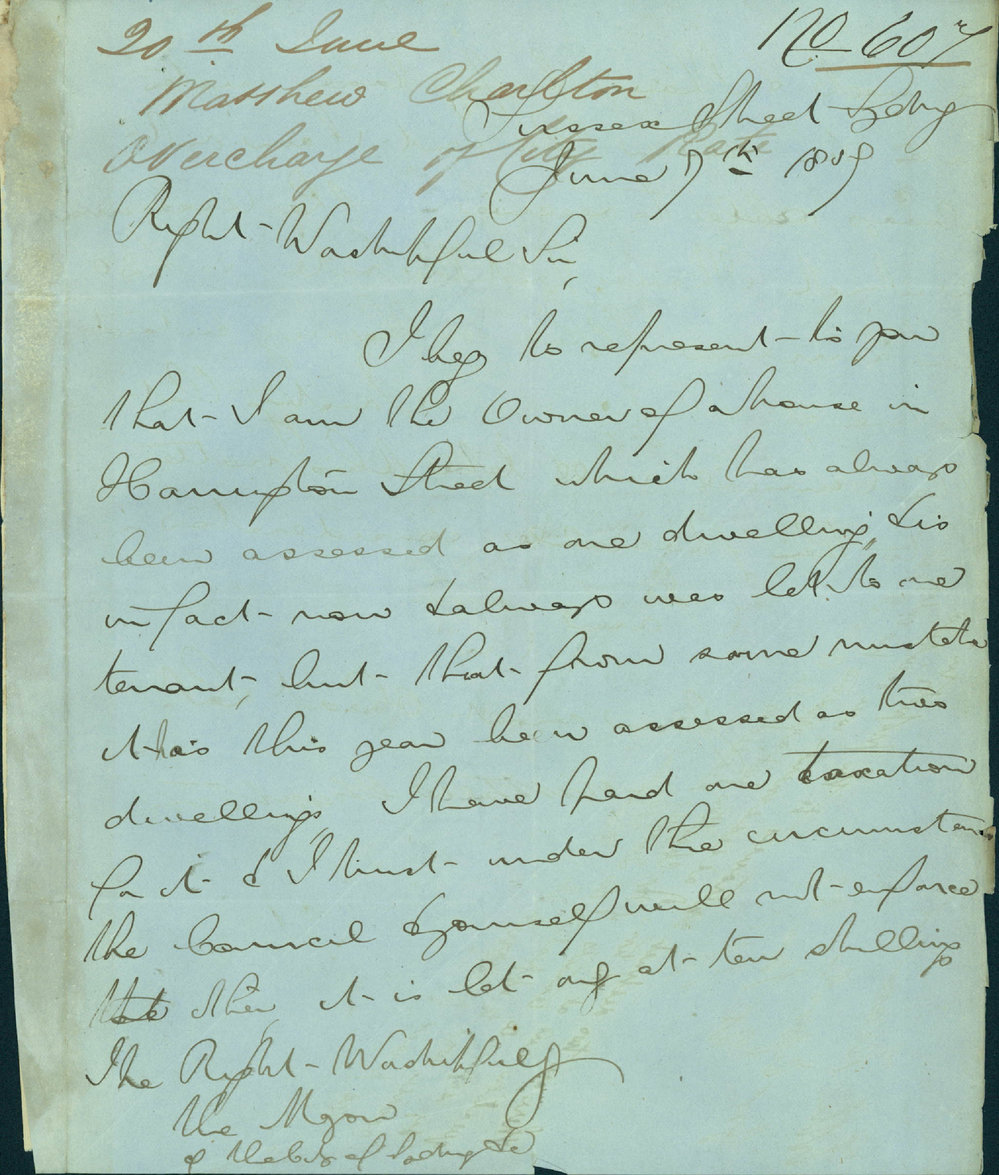 20th June
No 607
Matthew Charlton
Sussex Street Sydney
Overcharge of City Rate
June 17th
Right Worshipful Sir,
I beg to represent to you
that I am the Owner of a house in
Harrington Street which has always
been assessed as one dwelling, & is
in fact now & always was let to one
tenant, but that from some mistake
it has this year been assessed as two
dwellings, I have paid one taxation
for it & I trust under the circumstances
the Council & yourself will not enforce
the other, it is let only at ten shillings
The Right Worshipful
the Mayor
of the City of Sydney &c